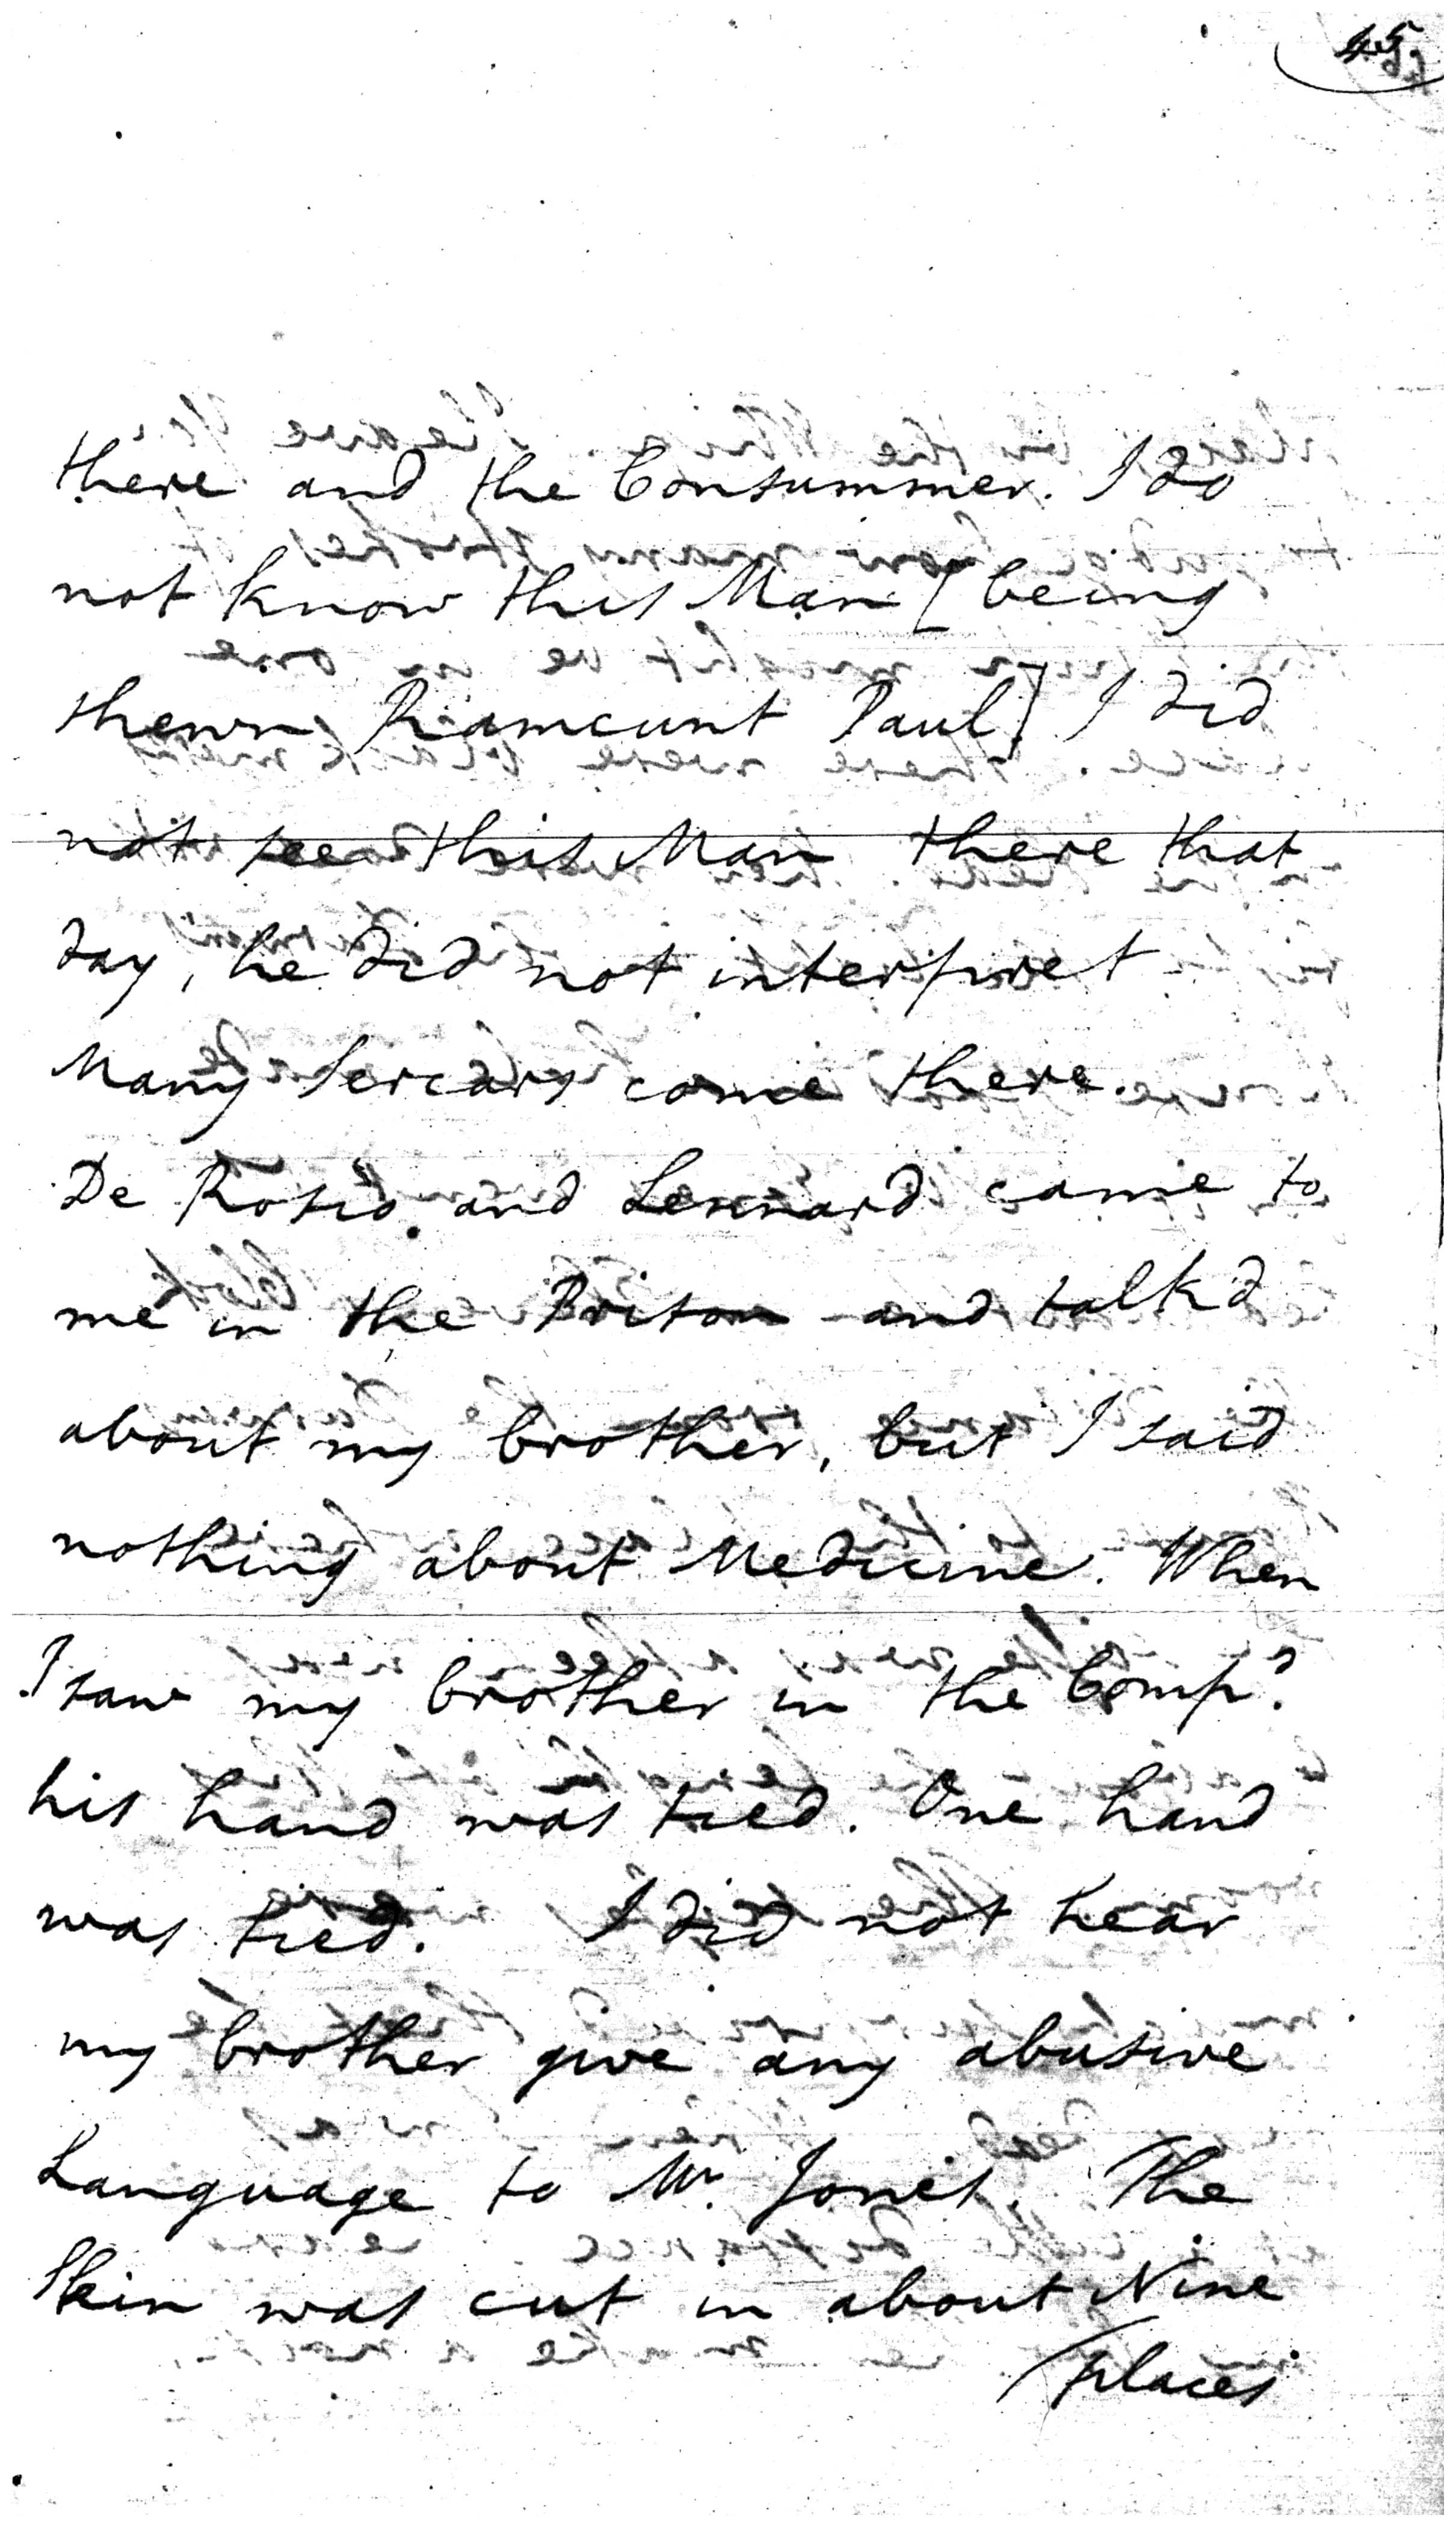 45
there and the Consummer. I do
not know this Man [being
shewn Ramcunt Paul] I did
not see this Man there that
day, he did not interpret
Many Sercars come there.
De Rosio and Lennard came to
me in the Prison and talkd
about my brother, but I said
nothing about Medicine. When
I saw my brother in the Compd
his hand was tied. One hand
was tied. I did not hear
my brother give any abusive
Language to Mr. Jones. The
Skin was cut in about Nine
places